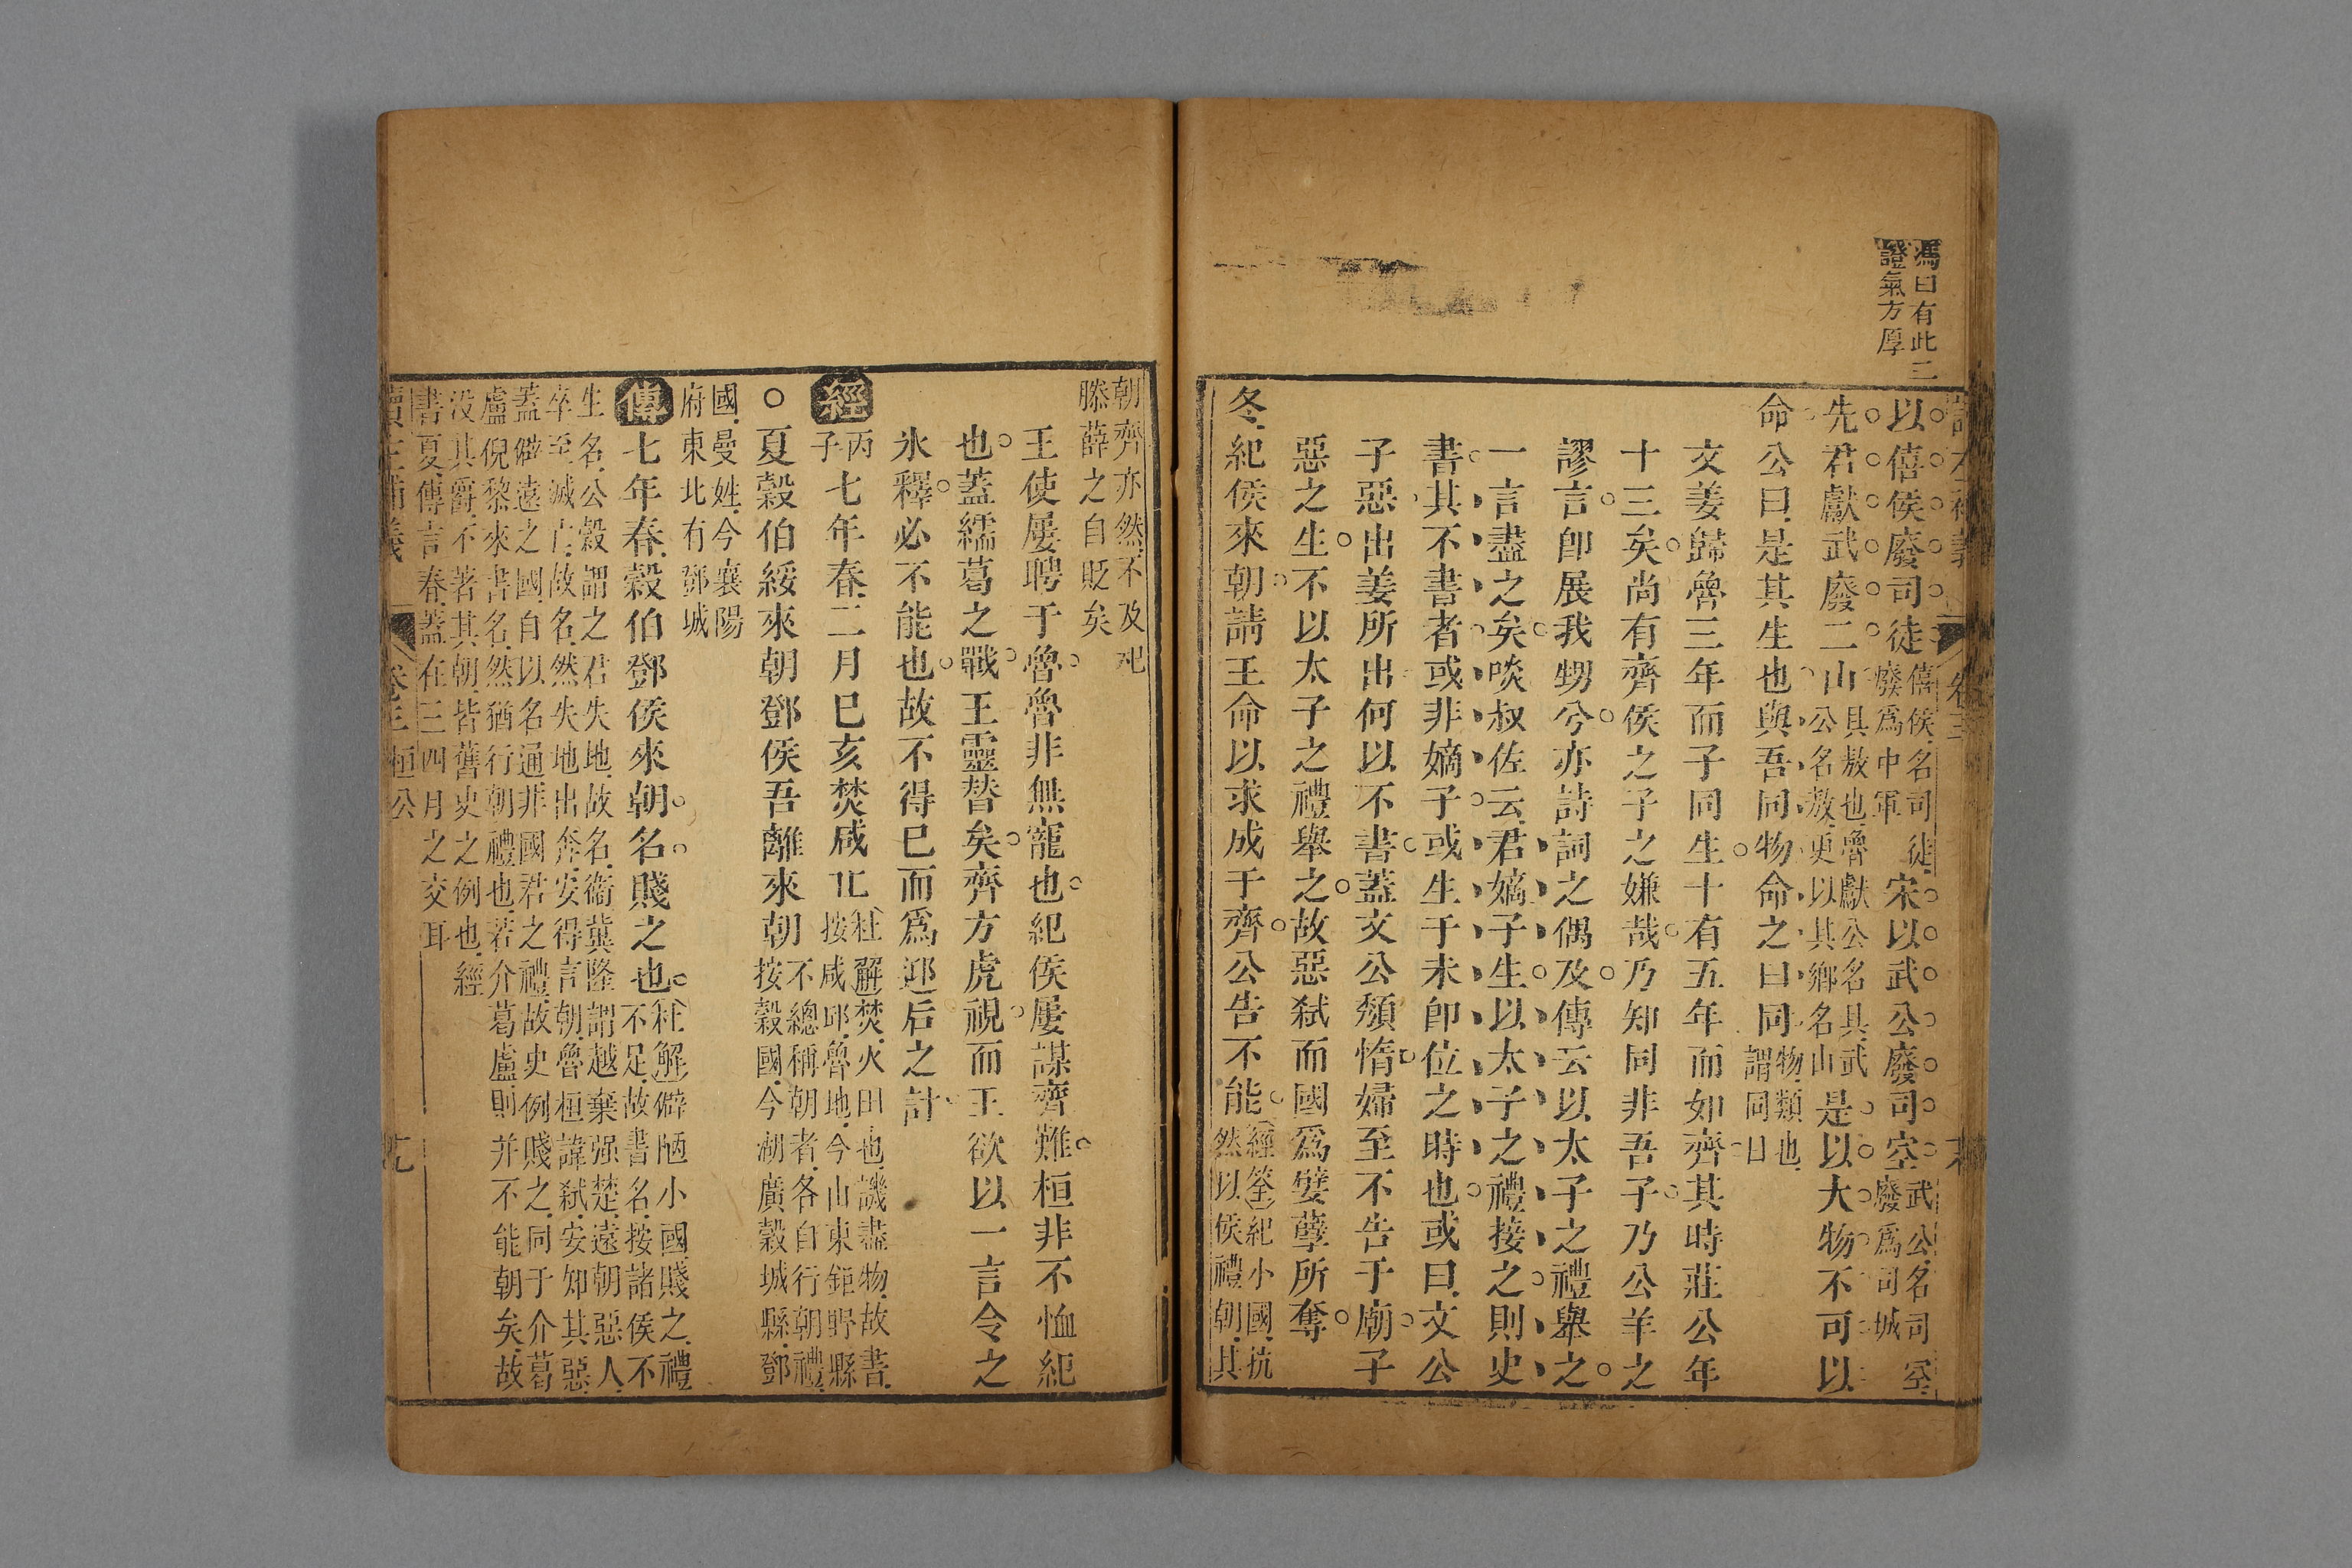 馮曰有此二
證氣方厚
以僖侯廢司徒僖侯名司徒
廢爲中軍宋以武公廢司空武公名司空
廢爲司城
先君獻武廢二山具敖也魯獻公名具武
公名敖更以其鄉名山是以大物不可以
命公曰是其生也與吾同物命之曰同物類也
謂同日
文姜歸魯三年而子同生十有五年而如齊其時莊公年
十三矣尚有齊侯之子之嫌哉乃知同非吾子乃公羊之
謬言卽展我甥兮亦詩詞之偶及傳云以太子之禮舉之
一言盡之矣啖叔佐云君嫡子生以太子之禮接之則史
書其不書者或非嫡子或生于未卽位之時也或曰文公
子惡出姜所出何以不書蓋文公頹惰婦至不告于廟子
惡之生不以太子之禮舉之故惡弒而國爲嬖孽所奪
冬紀侯來朝請王命以求成于齊公告不能經筌紀小國抗
然以侯禮朝其
朝齊亦然不及𣏌
滕薛之自貶矣
王使屢聘于魯魯非無寵也紀侯屢謀齊難桓非不恤紀
也蓋繻葛之戰王靈替矣齊方虎視而王欲以一言令之
氷釋必不能也故不得巳而爲迎后之計
經丙
子七年春二月巳亥焚咸丘杜解焚火田也譏盡物故書
按咸邱魯地今山東鉅野縣
○夏穀伯綏來朝鄧侯吾離來朝不總稱朝者各自行朝禮
按穀國今湖廣穀城縣鄧
國曼姓今襄陽
府東北有鄧城
傳七年春穀伯鄧侯來朝名賤之也杜解僻陋小國賤之禮
不足故書名按諸侯不
生名公穀謂之君失地故名衞冀隆謂越棄强楚遠朝惡人
卒至滅亡故名然失地出奔安得言朝魯桓諱弒安知其惡
蓋僻遠之國自以名通非國君之禮故史例賤之同于介葛
盧倪黎來書名然猶行朝禮也若介葛盧則并不能朝矣故
沒其爵不著其朝皆舊史之例也經
書夏傳言春蓋在三四月之交耳
讀左補義
卷三
桓公